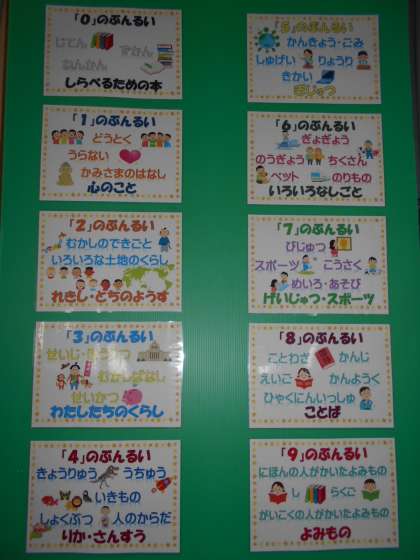 「0」のぶんるい
じてん
ずかん
ねんかん
しらべるための本
「1」のぶんるい
どうとく
うらない
かみさまのはなし
心のこと
「2」のぶんるい
むかしのできごと
いろいろな土地のくらし
れきし・とちのようす
「3」のぶんるい
むかしばなし
せいかつ
わたしたちのくらし
「4」のぶんるい
きょうりゅう うちゅう
いきもの
しょくぶつ 人のからだ
りか・さんすう
「5」のぶんるい
かんきょう・ごみ
しゅげい りょうり
きかい
ぎじゅつ
「6」のぶんるい
ぎょぎょう
のうぎょう ちくさん
ペット のりもの
いろいろなしごと
「7」のぶんるい
びじゅつ
スポーツ こうさく
めいろ・あそび
げいじゅつ・スポーツ
「8」のぶんるい
ことわざ かんじ
えいご かんようく
ひゃくにんいっしゅ
ことば
「9」のぶんるい
にほんの人がかいたよみもの
し らくご
がいこくの人がかいたよみもの
よみもの